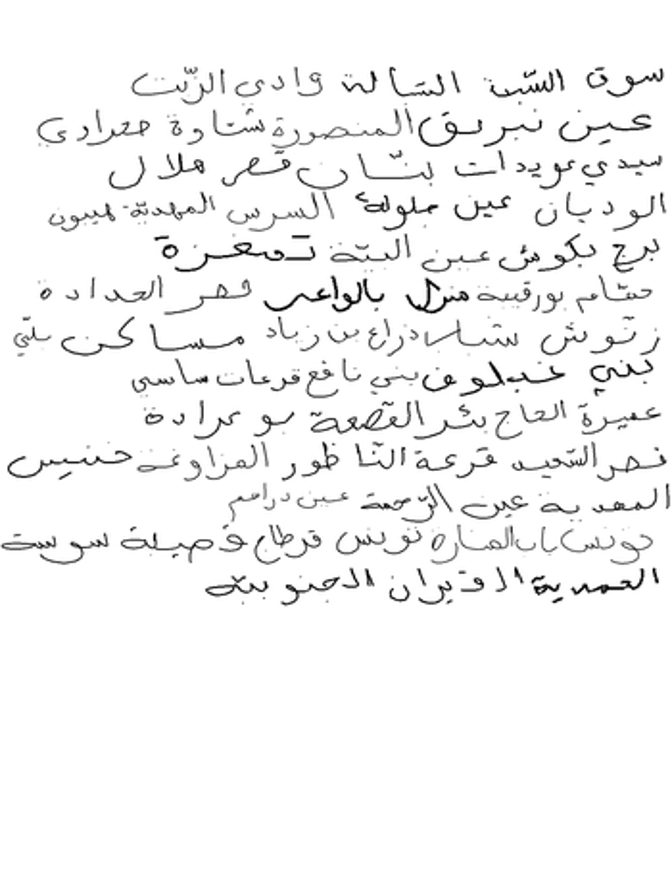 سوق السّبت الشالة وادي الزّيت
عين نبريق المنصورة شتاوة حيدرادي
سيدي عويدات بنّان قصر هلال
الوديان عين جلولة السرس المهديّة هيبون
برج بكوش عين البيّة تمغزة
حشام بورقيبة منزل بالواعر قصر الحدادة
زنّوش شمار ذراع بن زياد مساكن
بني خلوف بني نافع قرعات ساسي
عميرة الحاج بئر القصعة بو عرادة
قصر السّعيد قرعة النّاظور المزاوغة خنيس
المهدية عين الرّحمة عين دراهم
تونس باب المنارة تونس قرطاج قصيبة سوسة
المحمدية القيروان الجنوبيّة